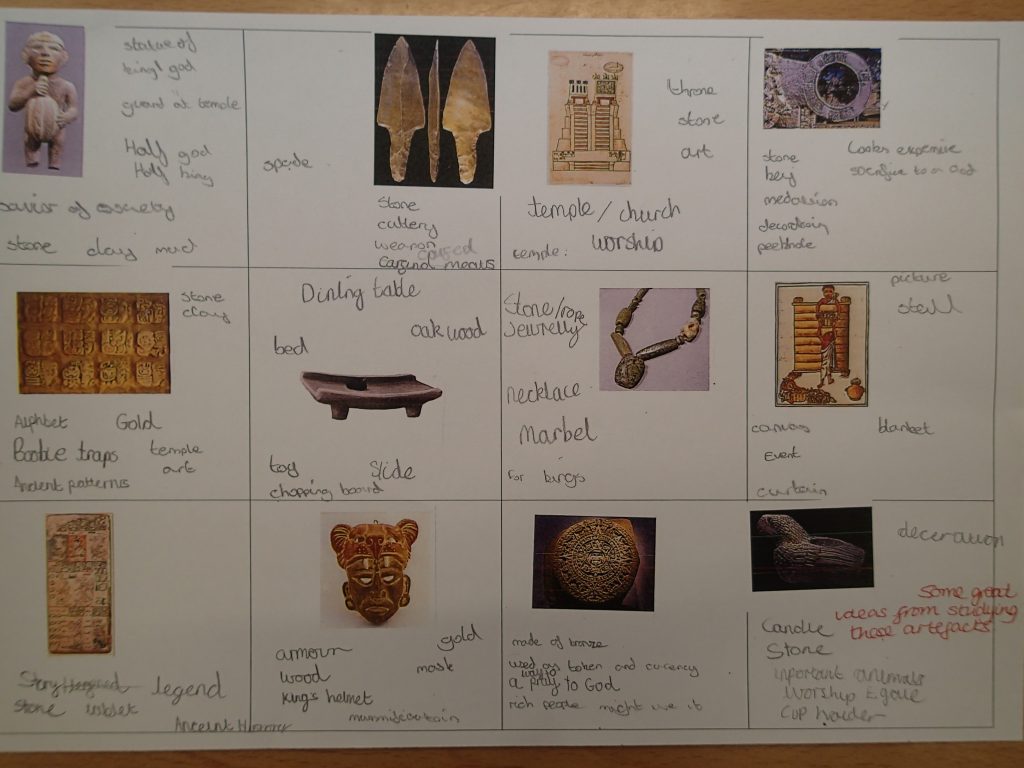 statue of
king/god
guard at temple
Half god
Half king
savior of society
stone clay mud
spade
Stone
cutlery
weapon
throne
stone
art
temple / church
temple: worship
stone
key
medallion
Looks expensive
sacrifice to a God
stone
clay
Alphbet Gold
Booble traps temple
art
Ancient patterns
Dining table
oak wood
bed
toy Slide
chopping board
Stone/rope
Jewrelly
necklace
Marbel
For kings
picture
canvas blanket
Event
curtain
legend
Stone
gold
armour
mask
wood
King's helmet
made of bronze
used as token and currency
way to
a pray to God
rich people might use it
deceration
Some great
ideas from studying
these artefacts
Candle
Stone
inportant animals
Worship Egale
Cup holder